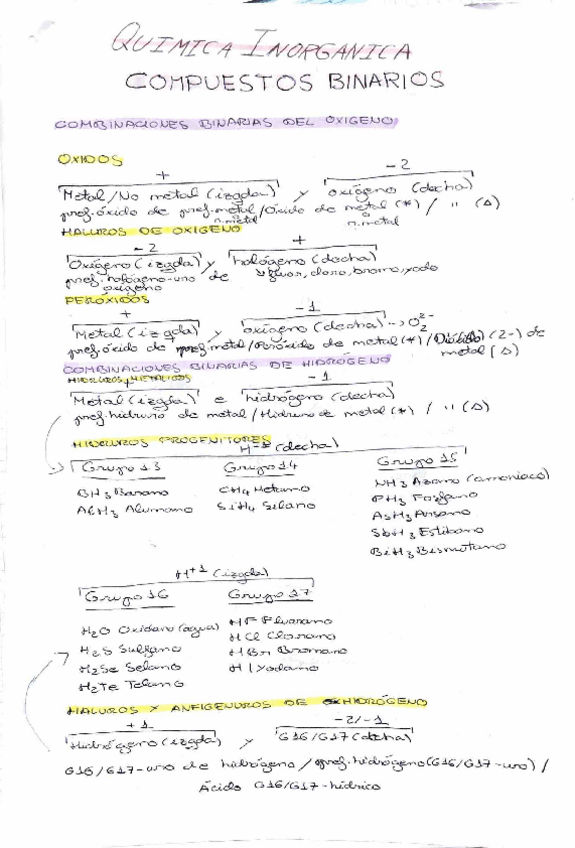 QUIMICA INORGANICA
COMPUESTOS BINARIOS
COMBINACIONES BINARIAS DEL OXIGENO
OXIDOS
+ -2
Metal/No metal (izqda) y oxígeno (dcha)
pref.óxido de pref.metal/Óxido de metal (*) / " (Δ)
n.metal o n.metal
HALUROS DE OXIGENO
-2 +
Oxígeno (izqda) y halógeno (dcha)
pref.halógeno-uro de oxígeno flúor, cloro, bromo, yodo
PERÓXIDOS
+ -1
Metal (izqda) y oxígeno (dcha) --> O₂²⁻
pref.óxido de pref.metal/Peróxido de metal (*) / Dióxido (2-) de
metal (Δ)
COMBINACIONES BINARIAS DE HIDRÓGENO
HIDRUROS METALICOS
+ -1
Metal (izqda) e hidrógeno (dcha)
pref.hidruro de metal/Hidruro de metal (*) / " (Δ)
HIDRUROS PROGENITORES
(decha)
Grupo 13 Grupo 14 Grupo 15
BH3 Borano CH4 Metano NH3 Azano (amoniaco)
AlH3 Alumano SiH4 Silano PH3 Fosfano
AsH3 Arsano
SbH3 Estibano
BiH3 Bismutano
H+1 (izqda)
Grupo 16 Grupo 17
H2O Oxidano (agua) HF Fluorano
H2S Sulfano HCl Clorano
H2Se Selano HBr Bromano
H2Te Telano HI Yodano
HALUROS Y ANFIGENUROS DE HIDRÓGENO
+1 -2/-1
Hidrógeno (izqda) y G16/G17 (dcha)
G16/G17-uro de hidrógeno/pref.hidrógeno(G16/G17-uro) /
Ácido G16/G17-hídrico